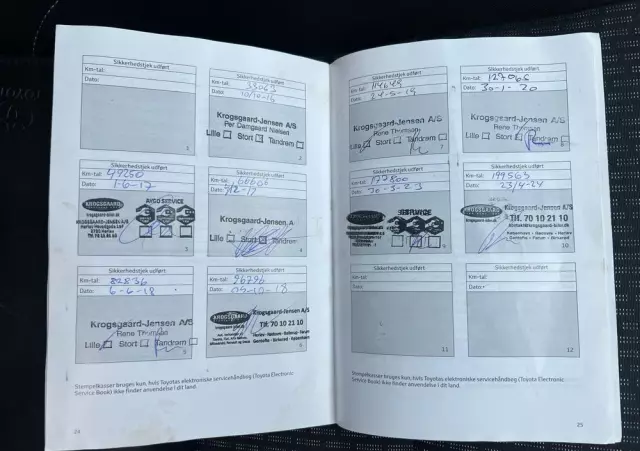 Sikkerhedstjek udført
Km-tal:
Dato:
1
Sikkerhedstjek udført
Km-tal: 33063
Dato: 10/10-16
Krogsgaard-Jensen A/S
Per Damgaard Nielsen
Lille Stort Tandrem
2
Sikkerhedstjek udført
Km-tal: 49250
Dato: 1-6-17
KROGSGAARD
AYCO SERVICE
3
Sikkerhedstjek udført
Km-tal: 66606
Dato:
Krogsgaard-Jensen A
Lille Stort Tandrem
4
Sikkerhedstjek udført
Km-tal: 82836
Dato: 6-6-18
Krogsgaard-Jensen A/S
Rene Thomsen
Lille Stort Tandrem
5
Sikkerhedstjek udført
Km-tal: 96796
Dato: 05-10-18
KROGSGAARD
Tlf. 70 10 21 10
6
Stempelkasser bruges kun, hvis Toyotas elektroniske servicehåndbog (Toyota Electronic
Service Book) ikke finder anvendelse i dit land.
24
Sikkerhedstjek udført
Km-tal: 114649
Dato:
Krogsgaard-Jensen A/S
Rene Thomsen
Lille Stort Tandrem
7
Sikkerhedstjek udført
Km-tal: 127066
Dato: 30-1-20
Krogsgaard-Jensen A/S
Rene Thomsen
Lille Stort Tandrem
8
Sikkerhedstjek udført
Km-tal: 177800
Dato: 30-3-23
SERVICE
9
Sikkerhedstjek udført
Km-tal: 199563
Dato: 23/4-24
KROGSGAARD
Tlf. 70 10 21 10
10
Sikkerhedstjek udført
Km-tal:
Dato:
11
Sikkerhedstjek udført
Km-tal:
Dato:
12
Stempelkasser bruges kun, hvis Toyotas elektroniske servicehåndbog (Toyota Electronic
Service Book) ikke finder anvendelse i dit land.
25